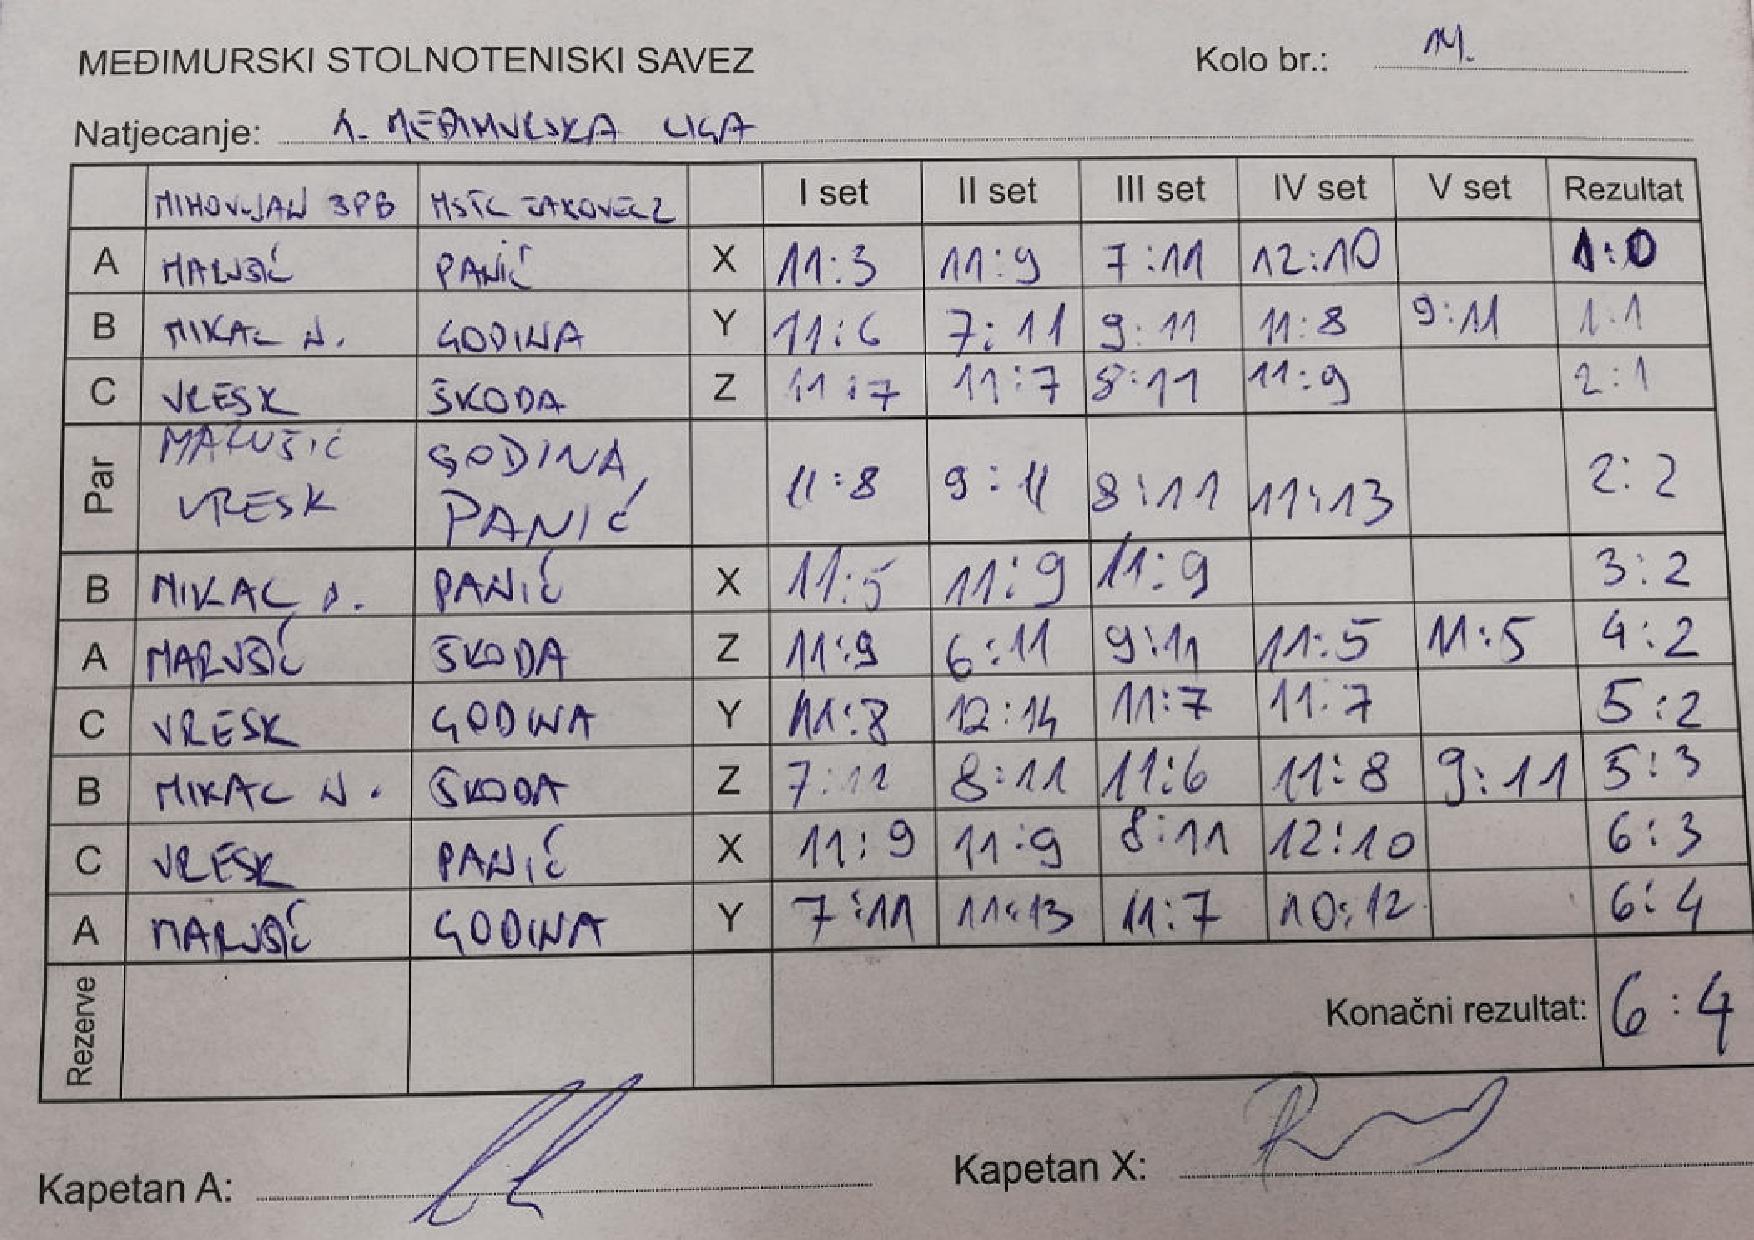 MEĐIMURSKI STOLNOTENISKI SAVEZ Kolo br.: 14.
Natjecanje: 1. MEĐIMURSKA LIGA
MIHOVLJAN 3PB MSTC ČAKOVEC 2 I set II set III set IV set V set Rezultat
A MARUŠIĆ PANIĆ X 11:3 11:9 7:11 12:10 1:0
B MIKAC N. GODINA Y 11:6 7:11 9:11 11:8 9:11 1:1
C VRESK ŠKODA Z 11:7 11:7 8:11 11:9 2:1
Par MARUŠIĆ GODINA, 11:8 9:11 8:11 11:13 2:2
VRESK PANIĆ
B MIKAC N. PANIĆ X 11:5 11:9 11:9 3:2
A MARUŠIĆ ŠKODA Z 11:9 6:11 9:11 11:5 11:5 4:2
C VRESK GODINA Y 11:8 12:14 11:7 11:7 5:2
B MIKAC N. ŠKODA Z 7:11 8:11 11:6 11:8 9:11 5:3
C VRESK PANIĆ X 11:9 11:9 8:11 12:10 6:3
A MARUŠIĆ GODINA Y 7:11 11:13 11:7 10:12 6:4
Rezerve Konačni rezultat: 6:4
Kapetan A: Kapetan X: